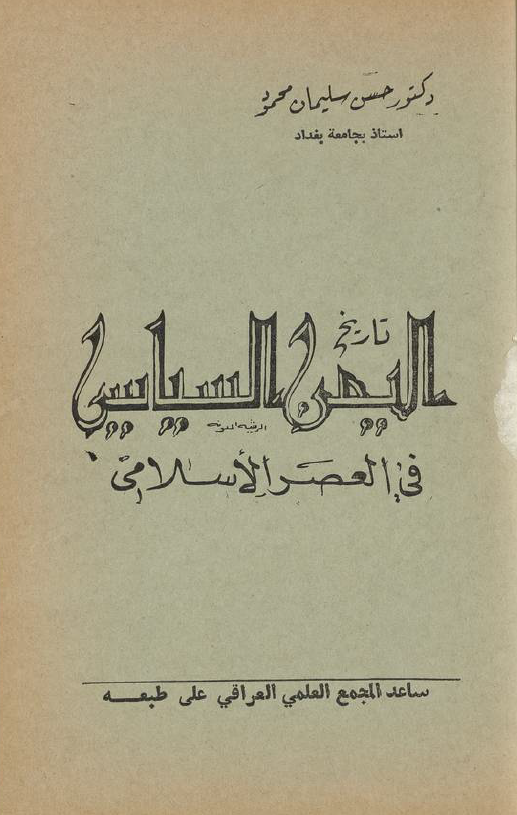 دكتور حسن سليمان محمود
استاذ بجامعة بغداد
تاريخ
اليمن السياسي
في العصر الأسلامي
ساعد المجمع العلمي العراقي على طبعه